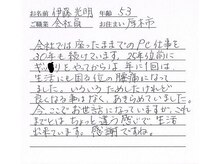 お名前 伊藤光明 年齢 53
ご職業 会社員 お住まい 厚木市
会社では座ったままでのPC仕事を
30年も続けています。25年位前に
ギックリをやってからは年に1回は
生活にも困る位の腰痛になって
ました。いろいろためしたけれど
良くなる事はなく、あきらめていました。
今、ここでお世話になっていますが、これ
までとはちょっと違う感じで生活
出来ています。感謝ですね。